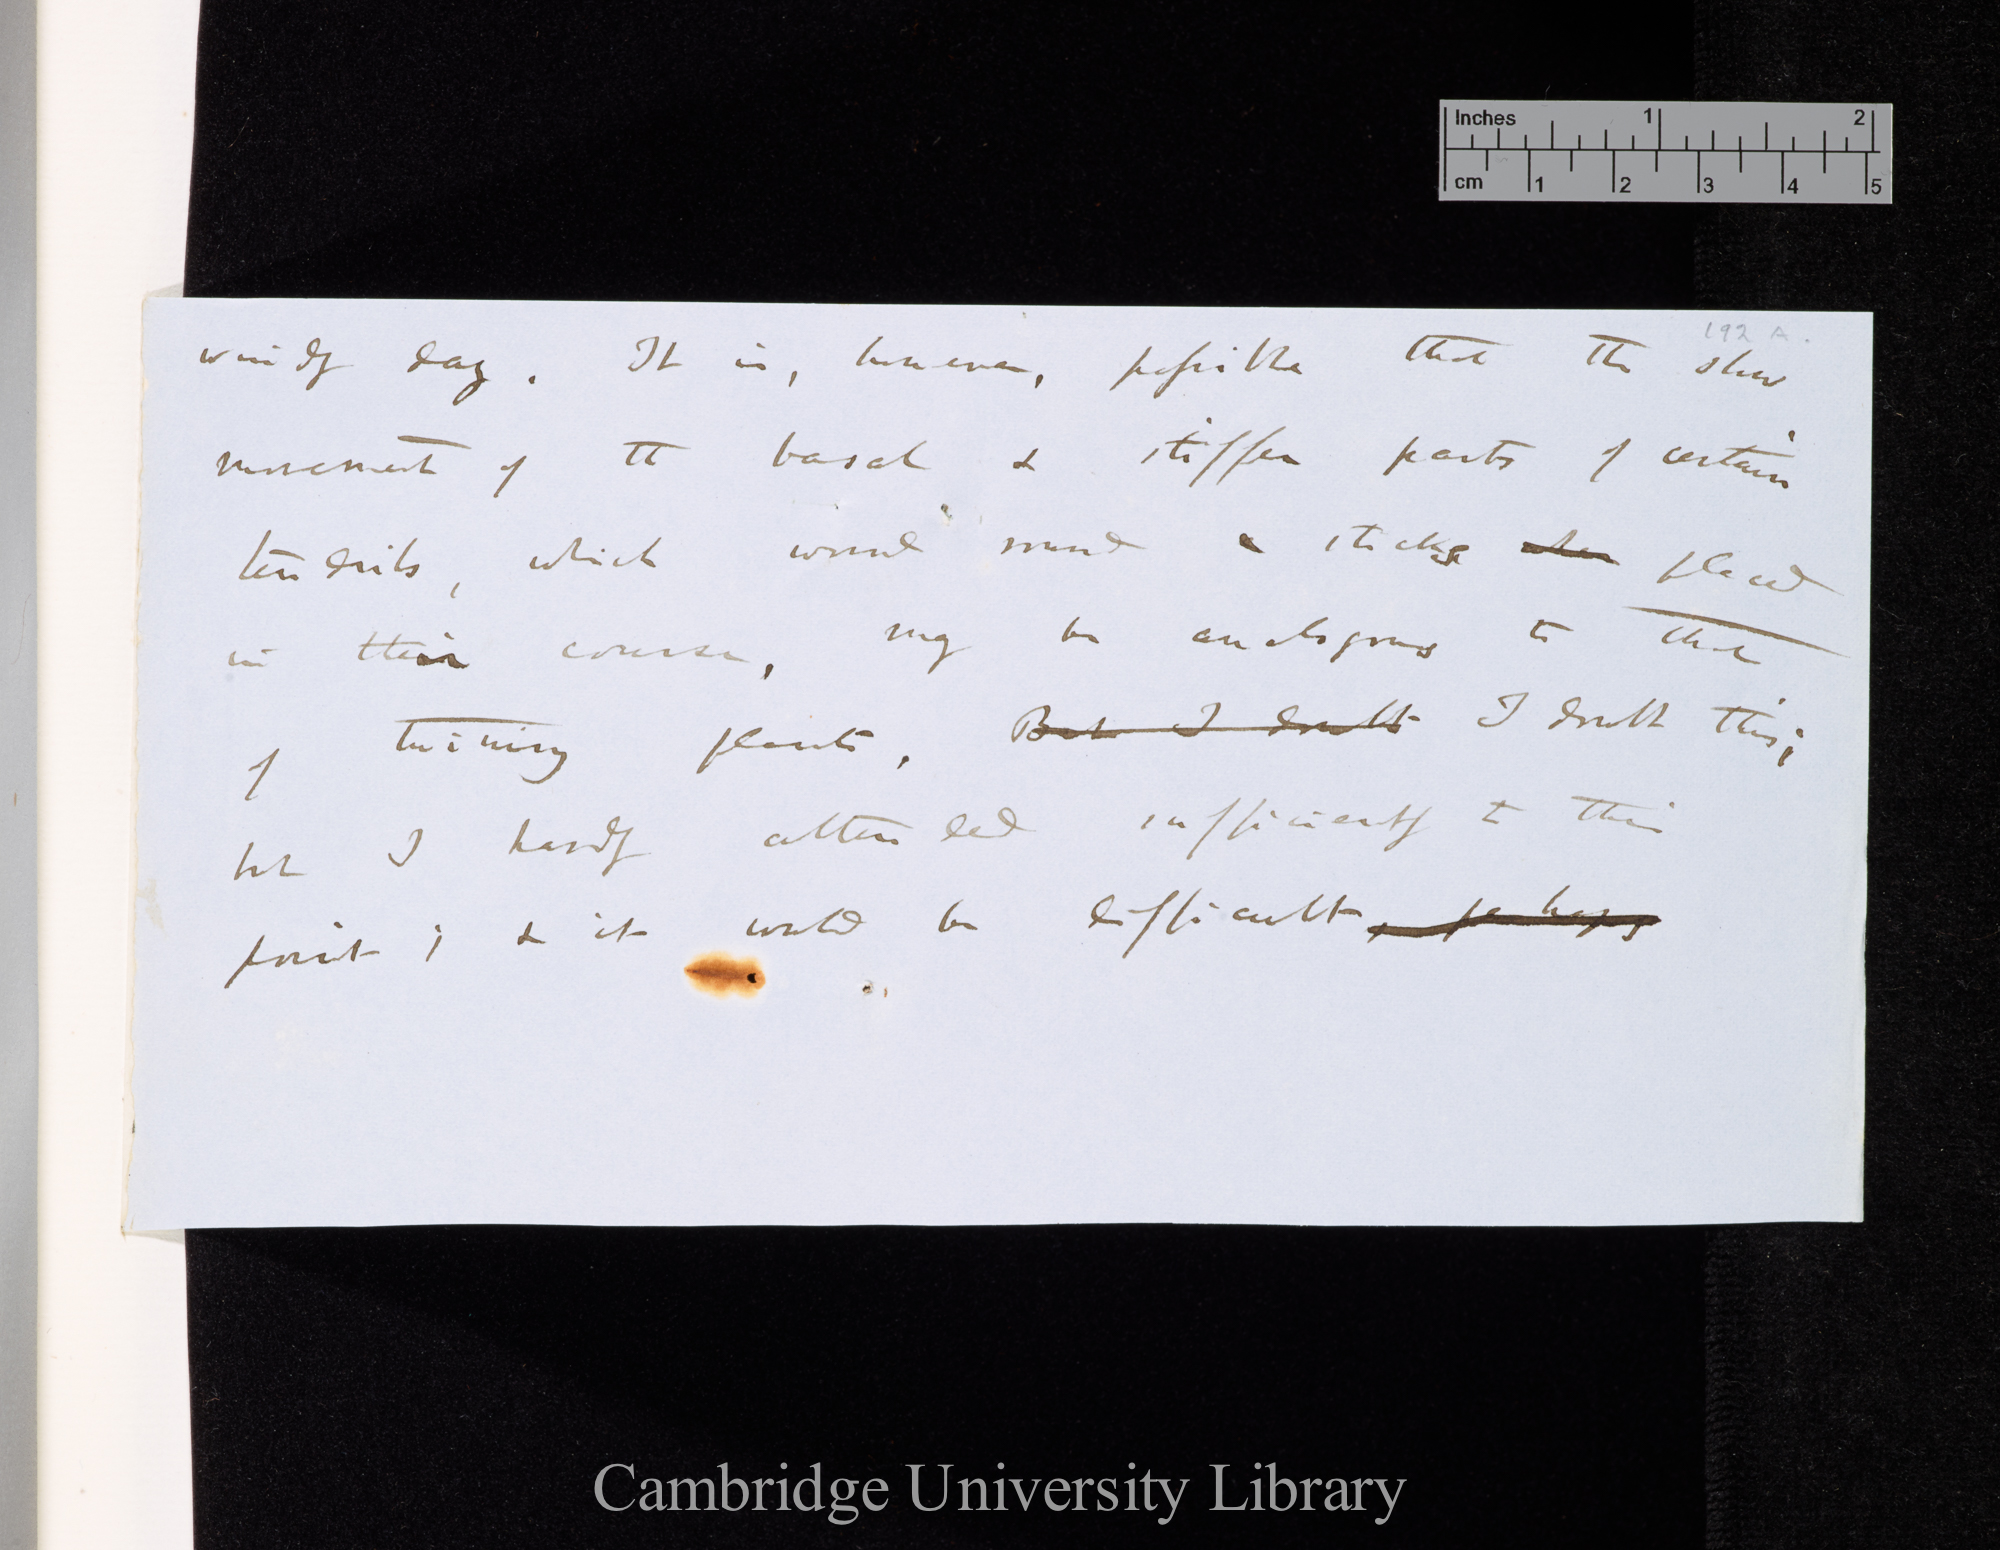 Inches 1 2
cm 1 2 3 4 5
192 A.
windy day. It is, however, possible that the slow
movement of the basal & stiffer parts of certain
tendrils, which wind round a sticks when placed
in their course, may be analogous to that
of twining plants, But I doubt I doubt this;
but I hardly attended sufficiently to this
point; & it would be difficult, perhaps
Cambridge University Library